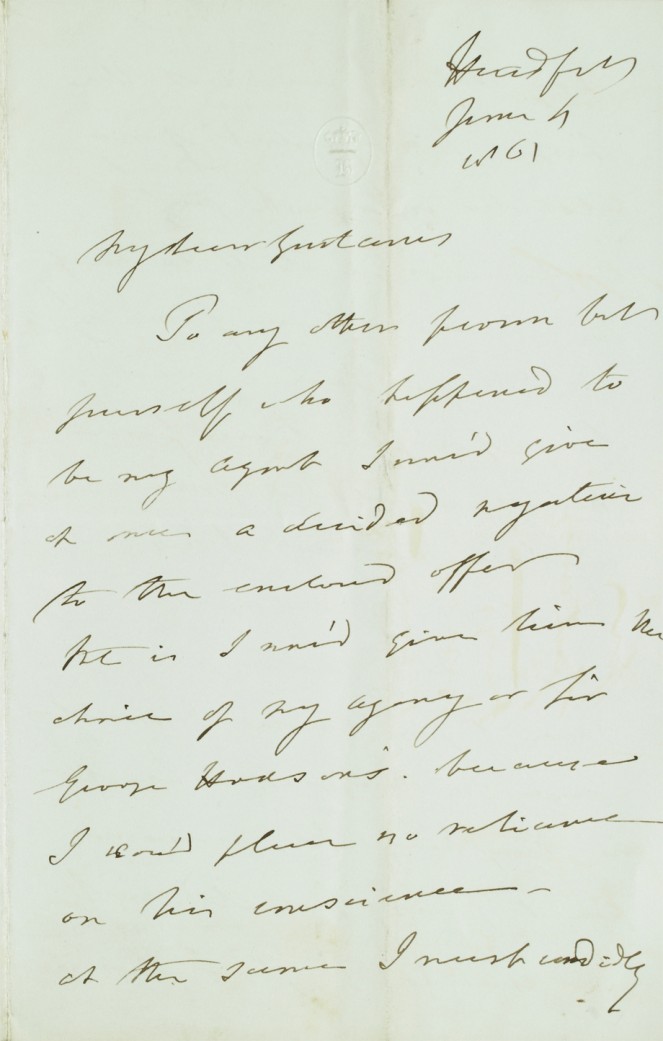 Headfort
June 4
1861
My dear Gustavus
To any other person but
yourself, who happened to
be my agent I wou'd give
at once a decided negative
to the enclosed offer
that is I wou'd give him the
choice of my agency or Sir
George Hodson's. because
I wou'd place no reliance
on his conscience –
at the same I must candidly